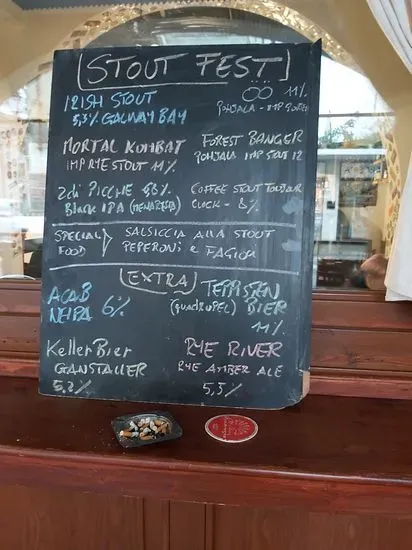 STOUT FEST
IRISH STOUT
5,3% GALWAY BAY
OO 11%
POHJALA - IMP STOUT
MORTAL KOMBAT
IMP RYE STOUT 11%
FOREST BANGER
POHJALA IMP STOUT 12
2 di PICCHE 6,8%
Black IPA (MENARESTA)
COFFEE STOUT
CLOCK - 8%
SPECIAL FOOD
SALSICCIA ALLA STOUT
PEPERONI E FAGIOLI
EXTRA
ACAB
NEIPA 6%
TEPISTEN
(QUADRUPEL) BIER
11%
Keller Bier
GANSTALLER
5.2%
RYE RIVER
RYE AMBER ALE
5,5%